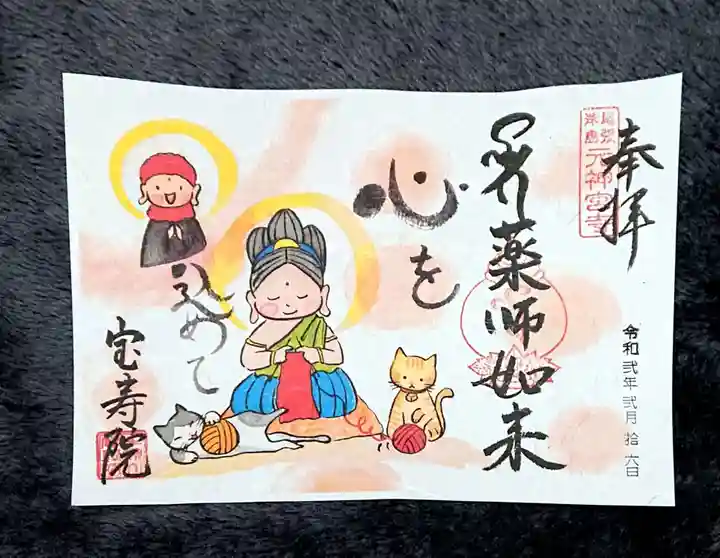 奉拝
尾張
津島
元神宮寺
薬師如来
令和弐年弐月拾六日
心を
込めて
宝寿院